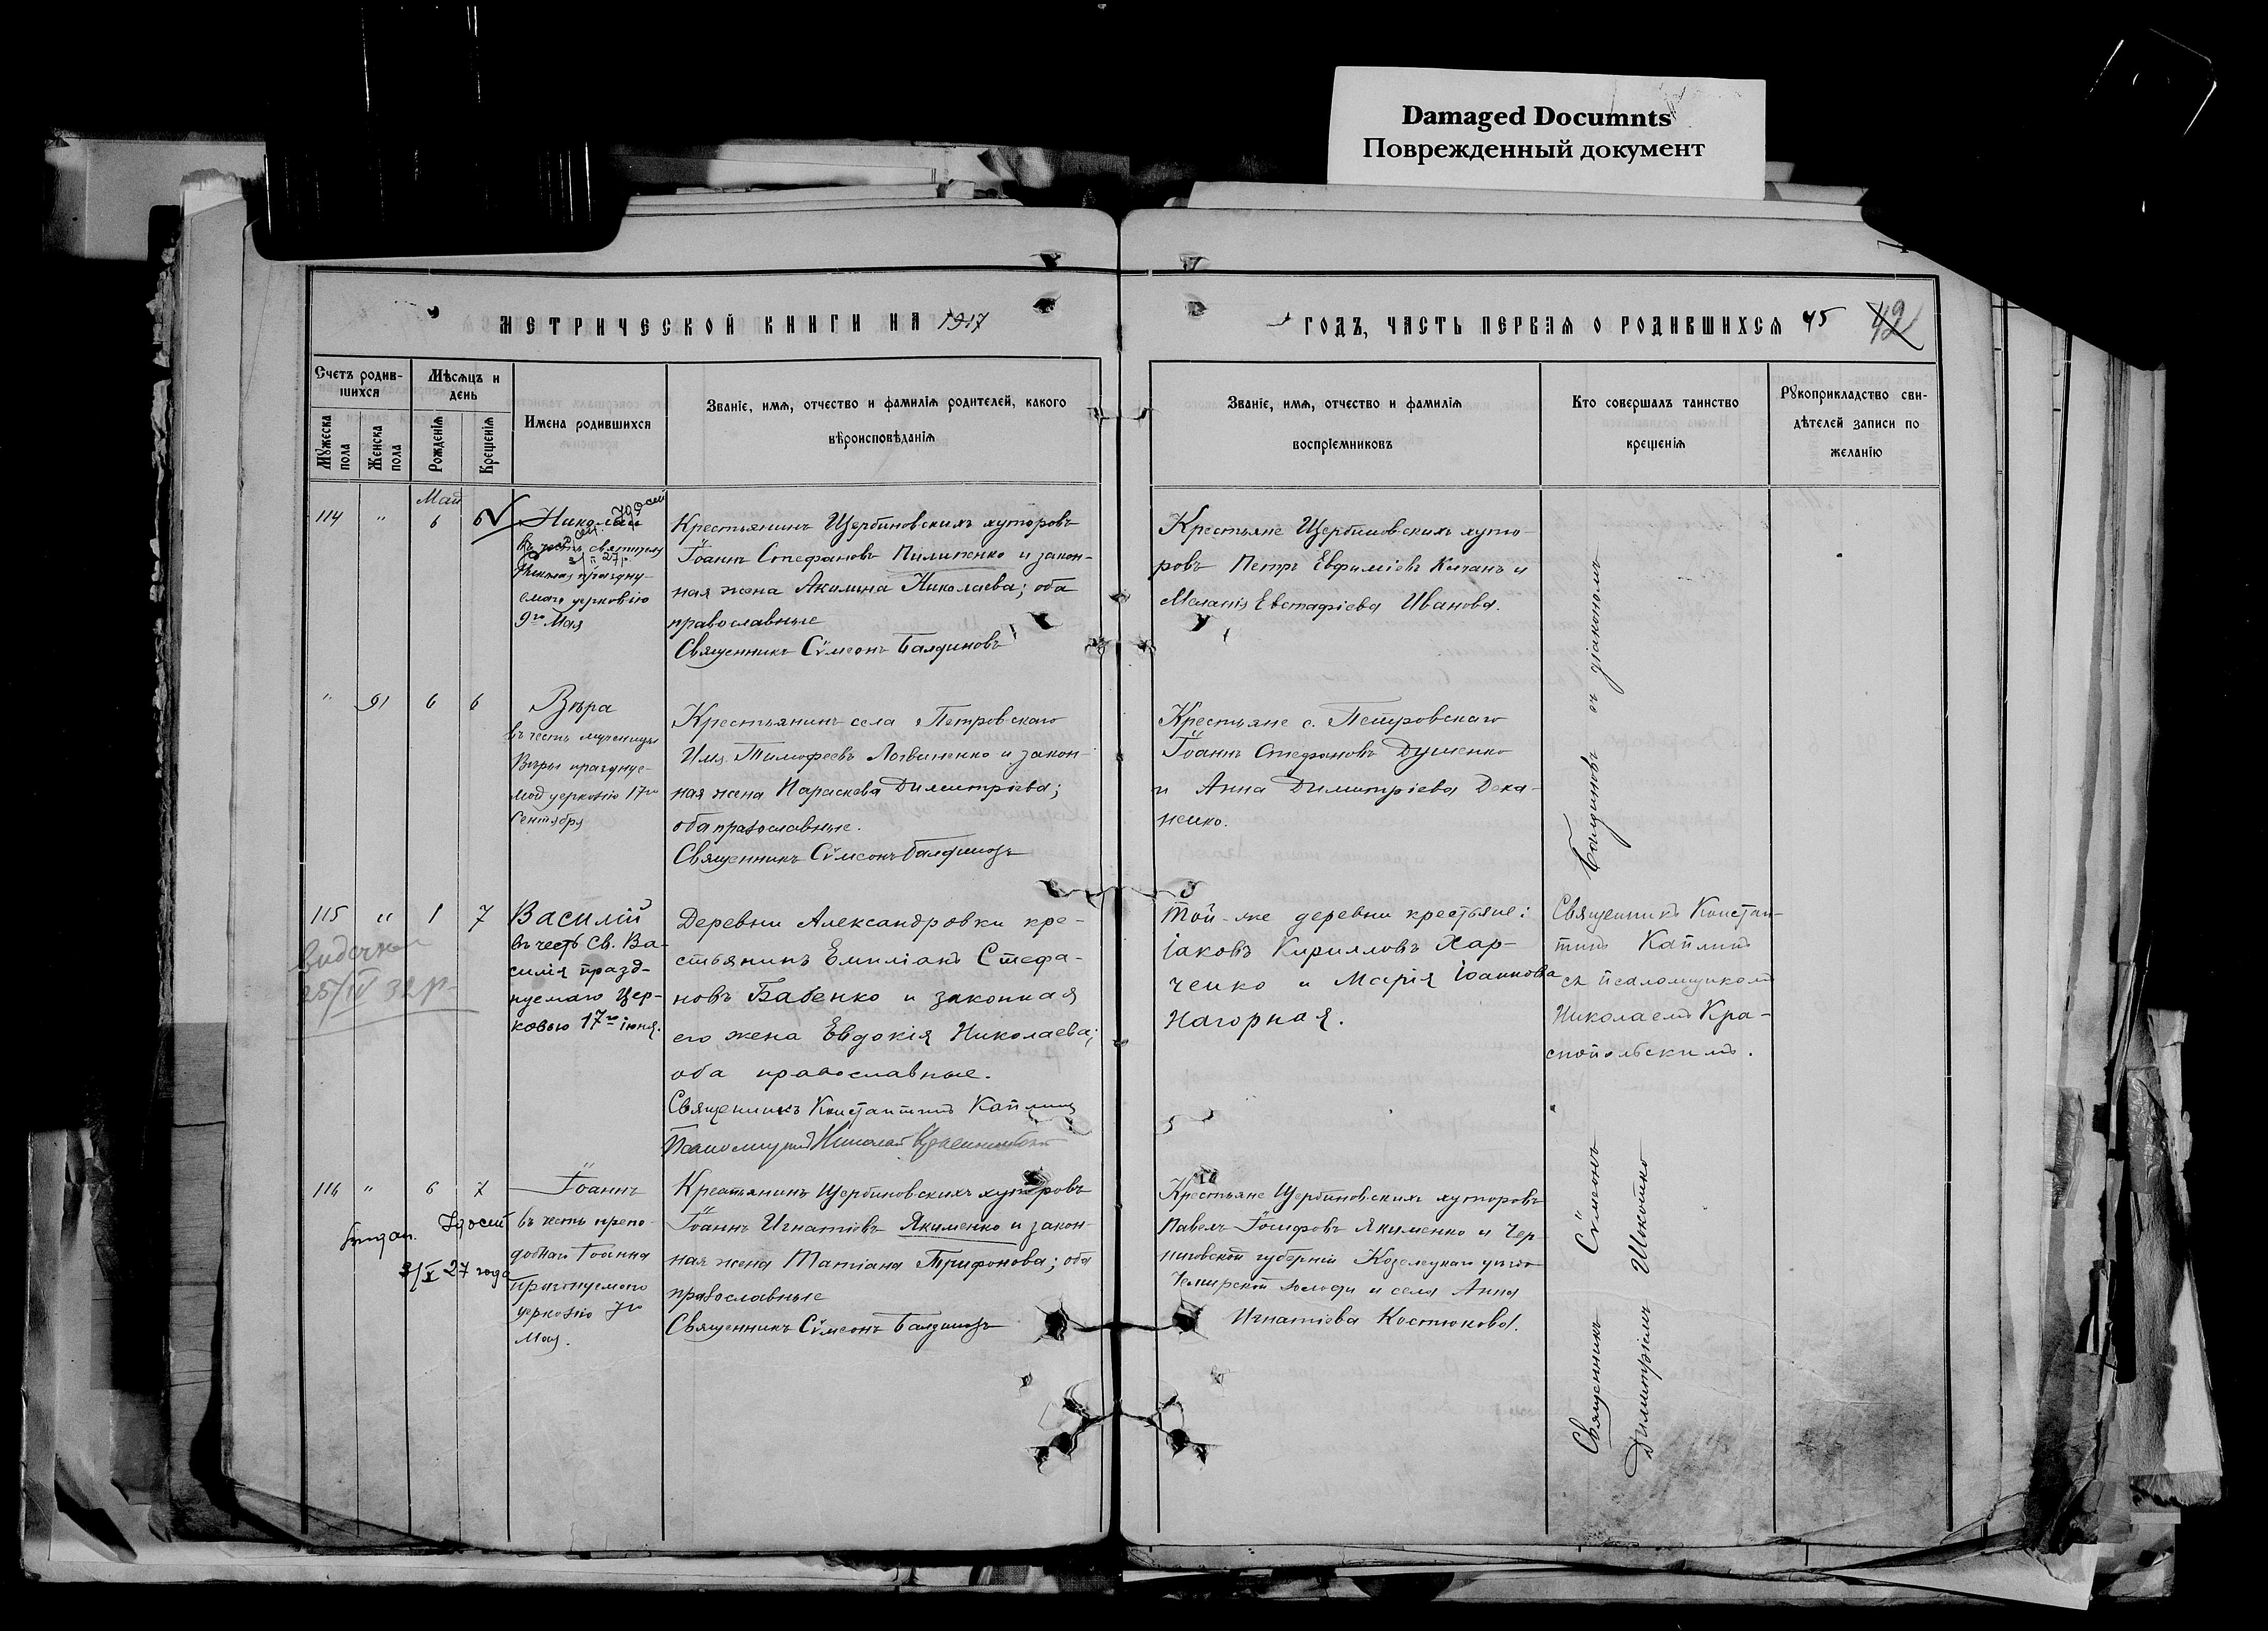 Damaged Documnts
Поврежденный документ
МЕТРИЧЕСКОЙ КНИГИ НА 1917
ГОДЪ, ЧАСТЬ ПЕРВАЯ О РОДИВШИХСЯ 45 42
Счетъ родив-
шихся
Мѣсяцъ и
день
Мужеска
пола
Женска
пола
Рожденія
Крещенія
Имена родившихся
Званіе, имя, отчество и фамилія родителей, какого
вѣроисповѣданія
Званіе, имя, отчество и фамилія
воспріемниковъ
Кто совершалъ таинство
крещенія
Рукоприкладство сви-
дѣтелей записи по
желанію
Май
114 " 6 6
Николай
въ честь святителя
Николая праздну-
емаго церковію
9го Мая
Крестьянинъ Щербиновскихъ хуторовъ
Іоаннъ Стефановъ Пилипенко и закон-
ная жена Акилина Николаева; оба
православные
Священникъ Сѵмеонъ Балдиновъ
Крестьяне Щербиновскихъ хуто-
ровъ Петръ Евфиміевъ Кичанъ и
Меланія Евстафіева Иванова.
" 91 6 6
Вѣра
въ честь мученицы
Вѣры празднуе-
мой церковію 17го
Сентября
Крестьянинъ села Петровскаго
Илія Тимофеевъ Логвиненко и закон-
ная жена Параскева Димитріева;
оба православные.
Священникъ Сѵмеонъ Балдиновъ
Крестьяне с. Петровскаго
Іоаннъ Стефановъ Душенко
и Анна Димитріева Дека-
ненко.
115 " 1 7
25/IV 32 р.
Василій
въ честь Св. Ва-
силія празд-
нуемаго Цер-
ковью 17го іюня.
Деревни Александровки кре-
стьянинъ Емиліанъ Стефа-
новъ Бабенко и законная
его жена Евдокія Николаева;
оба православные.
Священникъ Константинъ Каплинъ
Псаломщикъ Николай
Той-же деревни крестьяне:
Іаковъ Кирилловъ Хар-
ченко и Марія Іоаннова
Нагорная.
Священникъ Констан-
тинъ Каплинъ
съ псаломщикомъ
Николаемъ Кра-
снопольскимъ.
116 " 6 7
2/X 27 года
Іоаннъ
въ честь препо-
добнаго Іоанна
празднуемаго
церковію 7го
Мая.
Крестьянинъ Щербиновскихъ хуторовъ
Іоаннъ Игнатіевъ Якименко и закон-
ная жена Татіана Трифонова; оба
православные
Священникъ Сѵмеонъ Балдиновъ
Крестьяне Щербиновскихъ хуторовъ
Павелъ Іосифовъ Якименко и Чер-
ниговской губерніи Козелецкаго уѣзда
волости и села Анна
Игнатіева Костюкова.
Священникъ Сѵмеонъ Балдиновъ съ діакономъ
Димитріемъ Шокотько